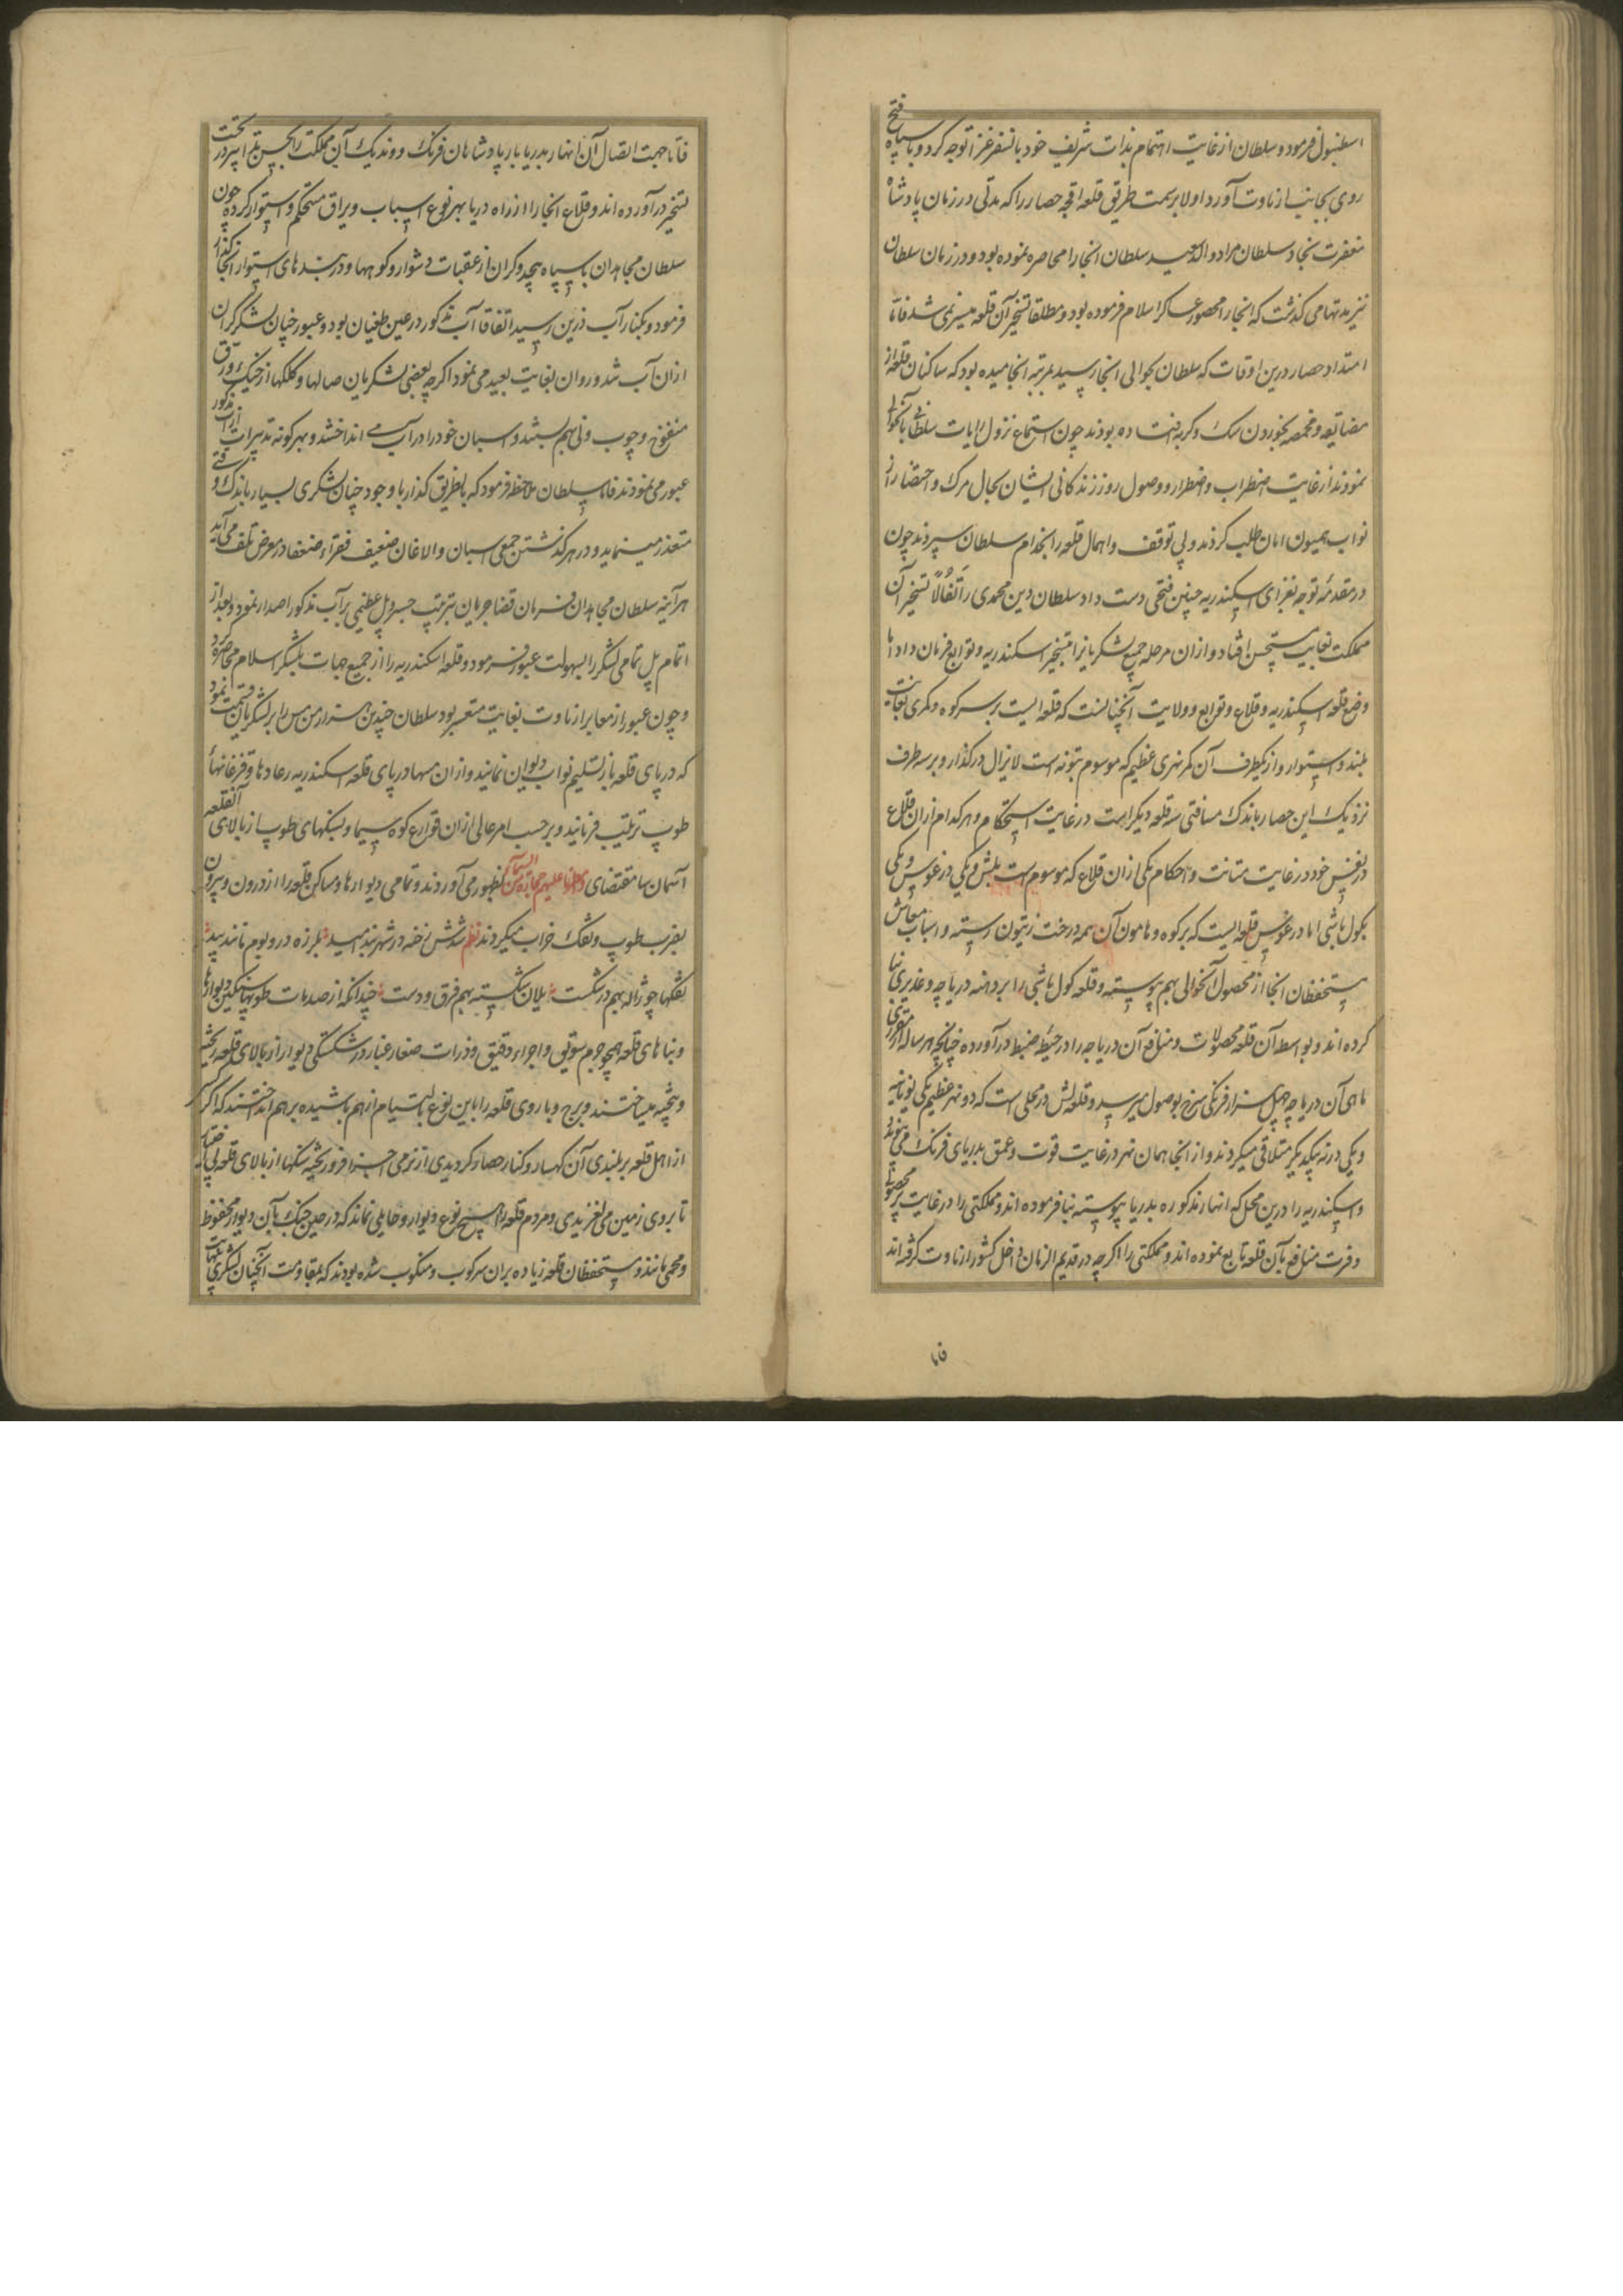 اسطنبول فرمود و سلطان از غایت اهتمام بذات شریف خود بانسفر غزا توجه کرد و با سپاه فتح
روی بجانب ارناوت آورد اولا بر سمت طریق قلعه اقچه حصار را که مدتی در زمان پادشاه
مغفرت نجاد سلطان مراد والد سعید سلطان انجا را محاصره نموده بود و در زمان سلطان
نیز مدتها می کذشت که انجا را محصور عساکر اسلام فرموده بود و مطلقا تسخیر آن قلعه میسر نمی شد فاما
امتداد حصار درین اوقات که سلطان بحوالی انجا رسید بمرتبه انجامیده بود که ساکنان قلعه از
مضایقه و مخمصه بخوردن سک و کربه افتاده بودند چون استماع نزول رایات سلطانی بانحوالی
نمودند از غایت اضطراب و اضطرار و وصول روز زندکانی ایشان بحال مرک و احتضار از
نواب همیون امان طلب کردند و بی توقف و اهمال قلعه را بخدام سلطان سپردند چون
در مقدمه توجه بغزای اسکندریه چنین فتحی دست داد سلطان دین محمدی را تفألا تسخیر آن
مملکت بغایت مستحسن افتاد و ازان مرحله جمیع لشکریانرا بتسخیر اسکندریه و توابع فرمان داد اما
وضع قلعه اسکندریه و قلاع و توابع و ولایت آنچنانست که قلعه ایست بر سر کوه و کمری بغایت
بلند و استوار و از یکطرف آن کمر نهری عظیم که موسوم بتونه است لایزال در کذار و بر سه طرف
نزدیک این حصار باندک مسافتی سه قلعه دیکر است در غایت استحکام و هر کدام ازان قلاع
در نفس خود در غایت متانت و احکام یکی ازان قلاع که موسوم است بلش و یکی درغوس و یکی
بکول باشی اما درغوس قلعه ایست که بر کوه و هامون آن همه درخت زیتون رسته و اسباب معاش
مستحفظان انجا از محصول آنحوالی بهم پیوسته و قلعه کول باشی را بر دهنه دریاچه و غدیری بنا
کرده اند و بواسطه آن قلعه محصولات و منافع آن دریاچه را در حیطه ضبط درآورده چنانچه هر ساله از مقرری
ماهی آن دریاچه چهل هزار فرنکی سرخ بوصول میرسد و قلعه لش در محلی است که دو نهر عظیم یکی بویانه
و یکی درنه بیکدیکر متلاقی میکردند و از انجا همان نهر در غایت قوت و عمق بدریای فرنک می پیوندد
و اسکندریه را درین محل که انهار مذکوره بدریا پیوسته بنا فرموده اند و مملکتی را در غایت پر محصولی
و وفرت منافع بآن قلعه تابع نموده اند و مملکتی را اکرچه در قدیم الزمان داخل کشور ارناوت کرفته اند
فاما
فاما جهت اتصال آن انهار بدریا بار پادشاهان فرنک و وندیک آن مملکت را بحسن تدابیر در تحت
تسخیر درآورده اند و قلاع انجا را از راه دریا بهر نوع اسباب و یراق مستحکم و استوار کرده چون
سلطان مجاهدان با سپاه بیحد و کران از عقبات دشوار و کوهها و دربندهای استوار انجا کذار
فرمود و بکنار آب درین رسید اتفاقا آب مذکور در عین طغیان بود و عبور چنان لشکر کران
ازان آب شد و روان بغایت بعید می نمود اکرچه بعضی لشکریان صالها و کلکها از خیک و زورق
منفوخ و چوب و نی بهم بستند و اسبان خود را در آب می انداختند و بهر کونه تدبیرات از آب مذکور
عبور می نمودند فاما سلطان ملاحظه فرمود که بانطریق کذار با وجود چنان لشکری بسیار باندک وقتی
متعذر مینماید و در هر کذشتن جمعی اسبان و الاغان ضعیف فقراء و ضعفا در معرض تلف می آید
هر آینه سلطان مجاهدان فرمان قضا جریان بترتیب جسر و پل عظیمی بر آب مذکور اصدار نمود و بعد از
اتمام پل تمامی لشکر را بسهولت عبور فرمود و قلعه اسکندریه را از جمیع جهات بلشکر اسلام محاصره کرد
و چون عبور از معابر ارناوت بغایت متعسر بود سلطان چندین هزار من مس را بر لشکریان قسمت نمود
که در پای قلعه باز تسلیم نواب دیوان نمایند و ازان مسها در پای قلعه اسکندریه رعادها و قزغانهاء
طوپ ترتیب فرمایند و بر حسب امر عالی ازان قوارع کوه سیما و سنکهای طوپ از بالای آنقلعه
آسمان سا مقتضای و امطرنا علیهم حجارة من السماء بظهور می آوردند و تمامی دیوارها و مساکن قلعه را از درون و بیرون
بضرب طوپ و تفک خراب میکردند نظم شدش رخنه در شهربند امید بلرزه در و بوم مانند بید
تفکها چو ژاله بهم در شکست یلان شکسته بهم فرق و دست چندانکه از صدمات طوپها سنکین دیوارها
و بناهای قلعه همچو جرم سوقی و اجزاء دقیق و ذرات صغار غبار در شکستکی دیوار از بالای قلعه ریخته
و بیخته میساختند و برج و باروی قلعه را باین نوع بی التیام از هم پاشیده بر هم انداختند که اکر کسی
از اهل قلعه بر بلندی آن کهسار و کنار حصار کردیدی از نرمی اجزا فرو ریخته سنکها از بالای قلعه بی اختیار
تا بروی زمین می لغزیدی و مردم قلعه را هیچ نوع دیوار و حایلی نماند که در حین جنک بآن دیوار محفوظ
و محمی مانند و مستحفظان قلعه زیاده بران سرکوب و منکوب شده بودند که بمقاومت آنچنان لشکری